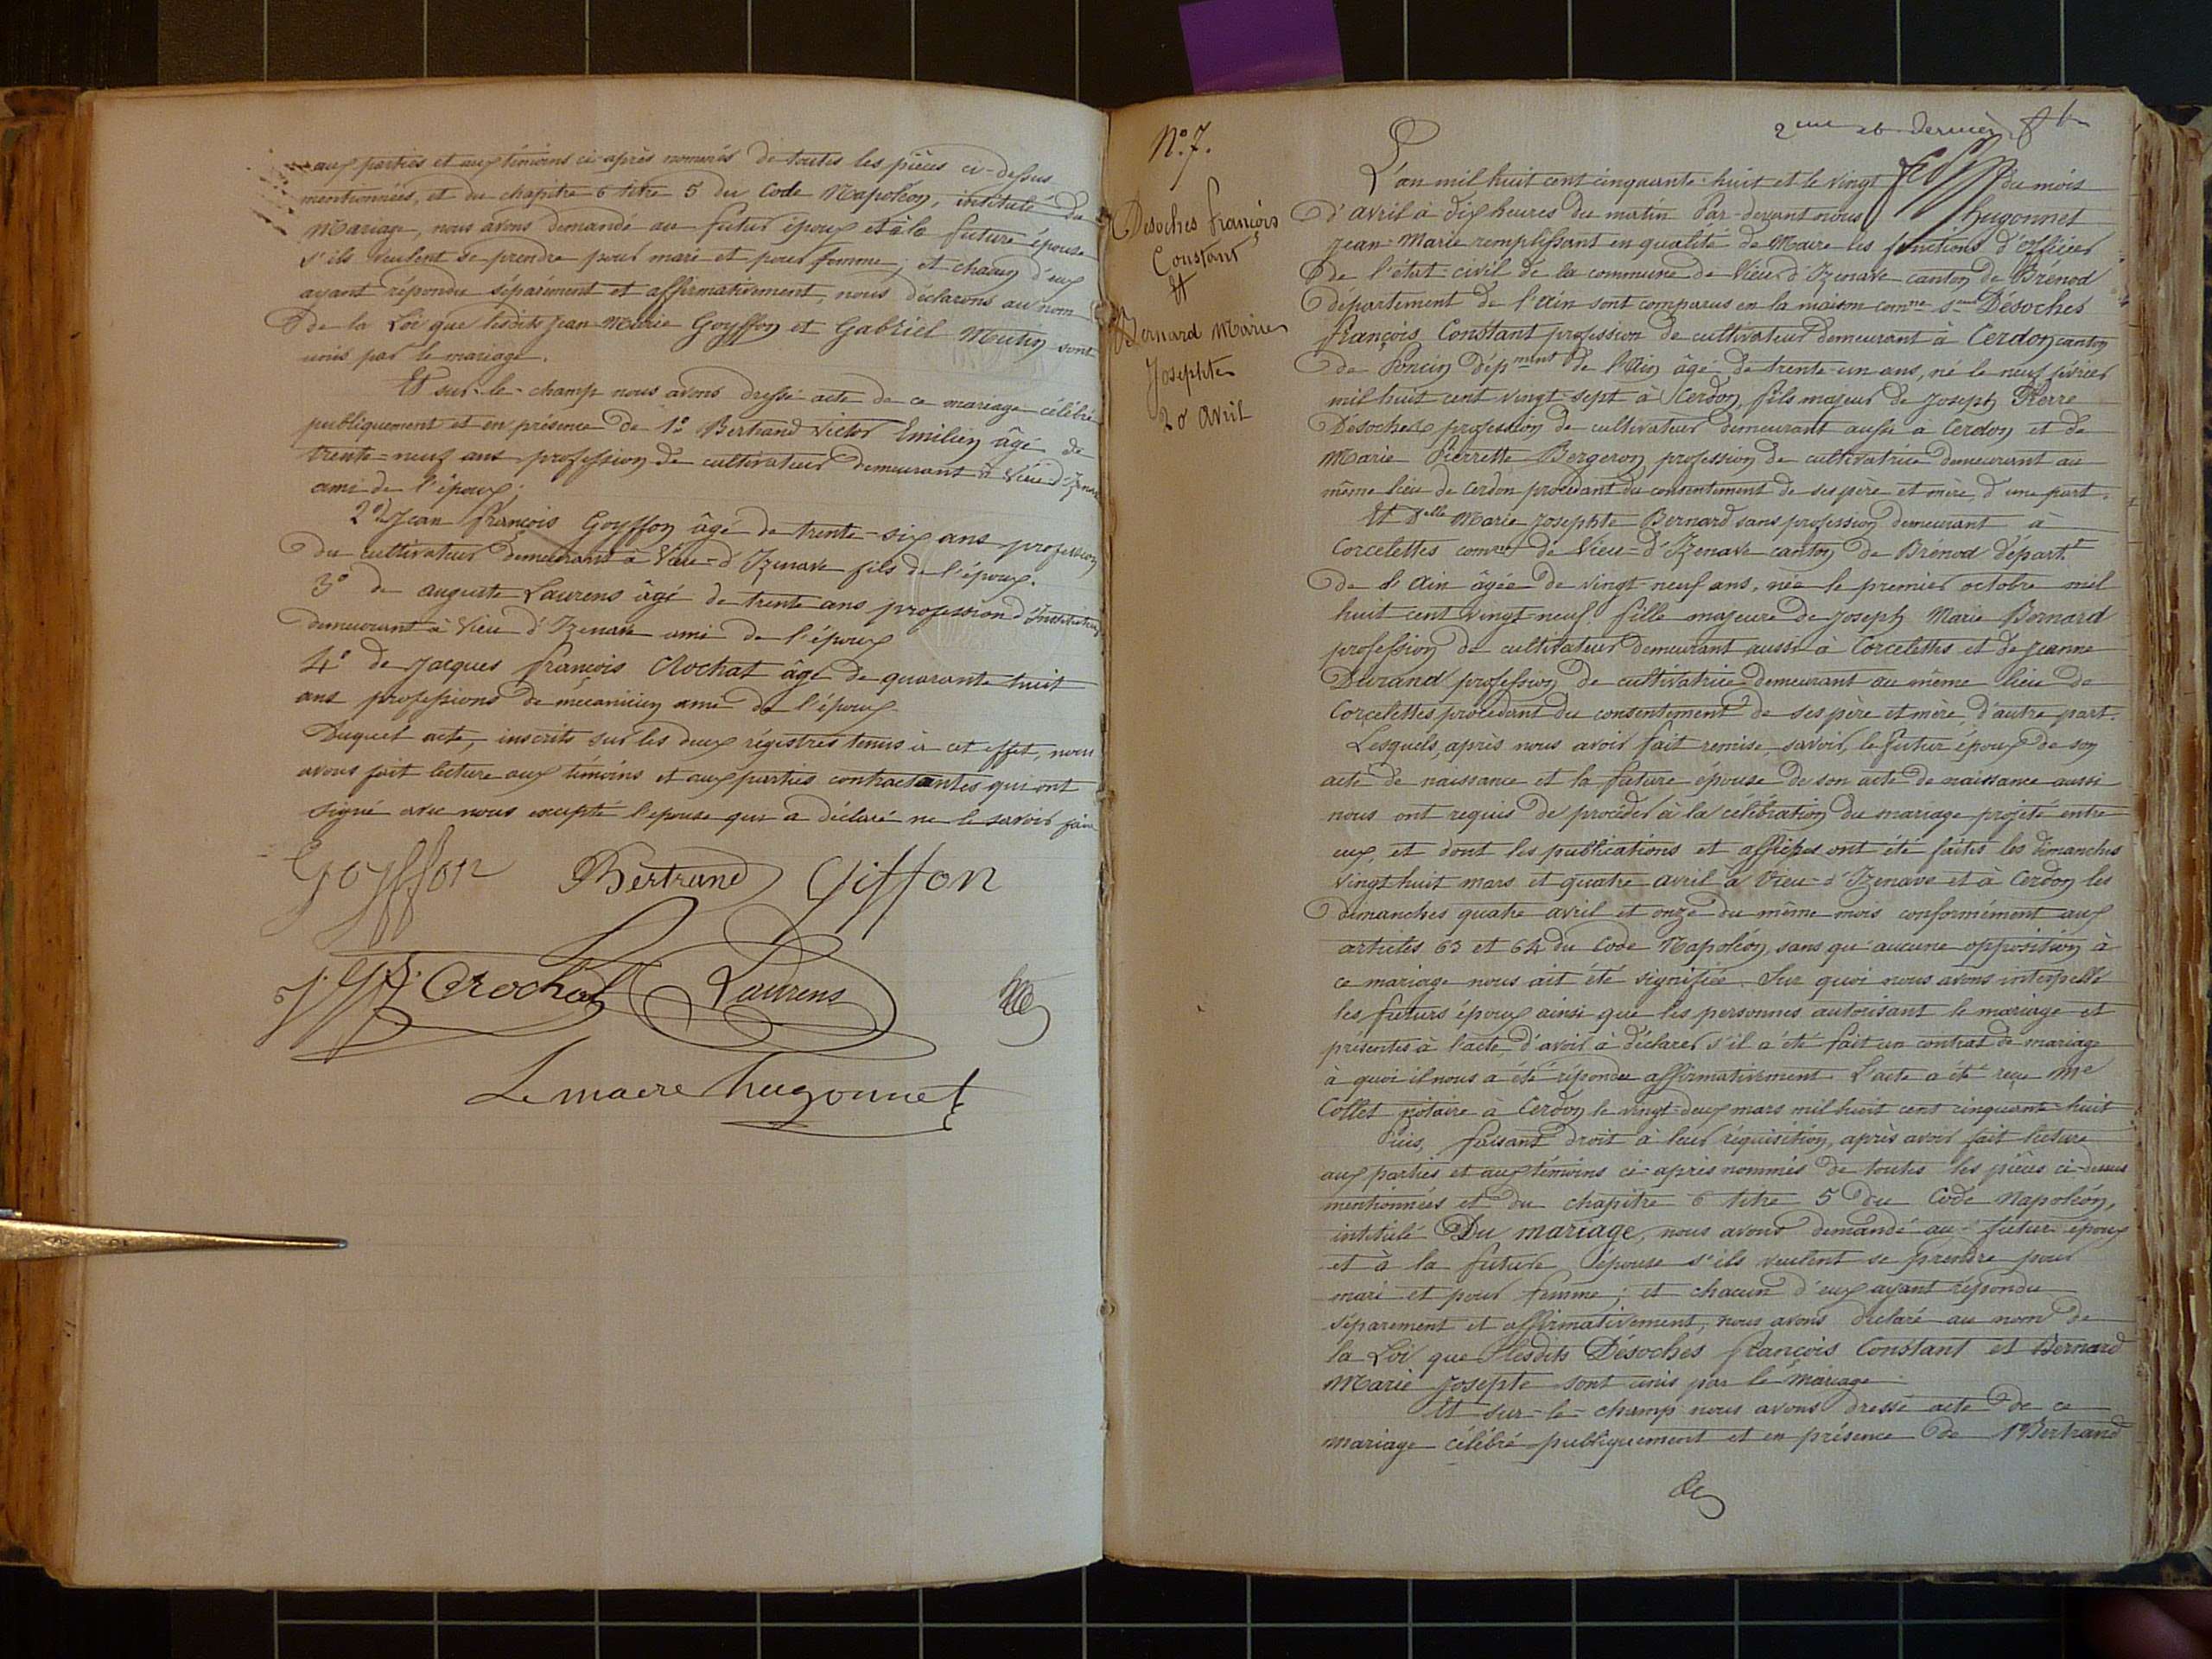 aux parties et aux témoins ci-après nommés de toutes les pièces ci-dessus
mentionnées, et du chapitre 6 titre 5 du Code Napoléon, intitulé du
Mariage, nous avons demandé au futur époux et à la future épouse
s'ils veulent se prendre pour mari et pour femme; et chacun d'eux
ayant répondu séparément et affirmativement, nous déclarons au nom
de la Loi que lesdits Jean-Marie Goyffon et Gabriel Mutin sont
unis par le mariage.
Et sur-le-champ nous avons dressé acte de ce mariage célébré
publiquement et en présence de 1° Bertrand Victor Emilien âgé de
trente-neuf ans profession de cultivateur demeurant à Vieu d'Izenave
ami de l'époux;
2° Jean François Goyffon âgé de trente-six ans profession
du cultivateur demeurant à Vieu-d'Izenave fils de l'époux.
3° de auguste Laurens âgé de trente ans profession d'Instituteur
demeurant à Vieu d'Izenave ami de l'époux
4° de Jacques François Crochat âgé de quarante huit
ans professions de mécanicien ami de l'époux
Duquel acte, inscrits sur les deux régistres tenus à cet effet, nous
avons fait lecture aux témoins et aux parties contractantes qui ont
signé avec nous excepté l'epouse qui a déclaré ne le savoir faire
Goyffon Bertrand Giffon
J. F. Crochat Laurens
Le maire hugonnet
2eme et dernier
N° 7.
Desoches françois
Constant
Et
Bernard Marie
Josephte
20 avril
L'an mil huit cent cinquante-huit et le vingt du mois
d'avril à dix heures du matin Par-devant nous hugonnet
Jean-Marie remplissant en qualité de Maire les fonctions d'officier
de l'état-civil de la commune de Vieu d'Izenave canton de Brénod
département de l'ain sont comparus en la maison comne Désoches
François Constant profession de cultivateur demeurant à Cerdon canton
de Poncin dépment de l'ain âgé de trente-un ans, né le neuf février
mil huit cent vingt-sept à Cerdon, fils majeur de Joseph Pierre
Désoches profession de cultivateur demeurant aussi à Cerdon et de
Marie Pierrette Bergeron profession de cultivatrice demeurant au
même lieu de Cerdon procédant du consentement de ses père et mère, d'une part.
Et Delle Marie Josephte Bernard sans profession demeurant à
Corcelettes comne de Vieu-d'Izenave canton de Brénod départt
de l'ain âgée de vingt-neuf ans, née le premier octobre mil
huit cent vingt-neuf fille majeure de Joseph Marie Bernard
profession de cultivateur demeurant aussi à Corcelettes et de Jeanne
Durand profession de cultivatrice demeurant au même lieu de
Corcelettes, procédant du consentement de ses père et mère, d'autre part.
Lesquels, après nous avoir fait remise, savoir, le futur époux de son
acte de naissance et la future épouse de son acte de naissance aussi
nous ont requis de procéder à la célébration du mariage projeté entre
eux, et dont les publications et affiches ont été faites les dimanches
vingt-huit mars et quatre avril à Vieu-d'Izenave et à Cerdon les
dimanches quatre avril et onze du même mois conformément aux
articles 63 et 64 du Code Napoléon, sans qu'aucune opposition à
ce mariage nous ait été signifiée. Sur quoi nous avons interpellé
les futurs époux ainsi que les personnes autorisant le mariage et
présentes à l'acte d'avoir à déclarer s'il a été fait un contrat de mariage
à quoi il nous a été répondu affirmativement. L'acte a été reçu Me
Collet notaire à Cerdon le vingt-deux mars mil huit cent cinquante-huit
Puis, faisant droit à leur réquisition, après avoir fait lecture
aux parties et aux témoins ci-après nommés de toutes les pièces ci-dessus
mentionnées et du chapitre 6 titre 5 du Code Napoléon,
intitulé Du mariage, nous avons demandé au futur époux
et à la future épouse s'ils veulent se prendre pour
mari et pour femme; et chacun d'eux ayant répondu
séparement et affirmativement, nous avons déclaré au nom de
la Loi que lesdits Désoches François Constant et Bernard
Marie Josepte sont unis par le mariage.
Et sur-le-champ nous avons dressé acte de ce
mariage célébré publiquement et en présence de 1° Bertrand